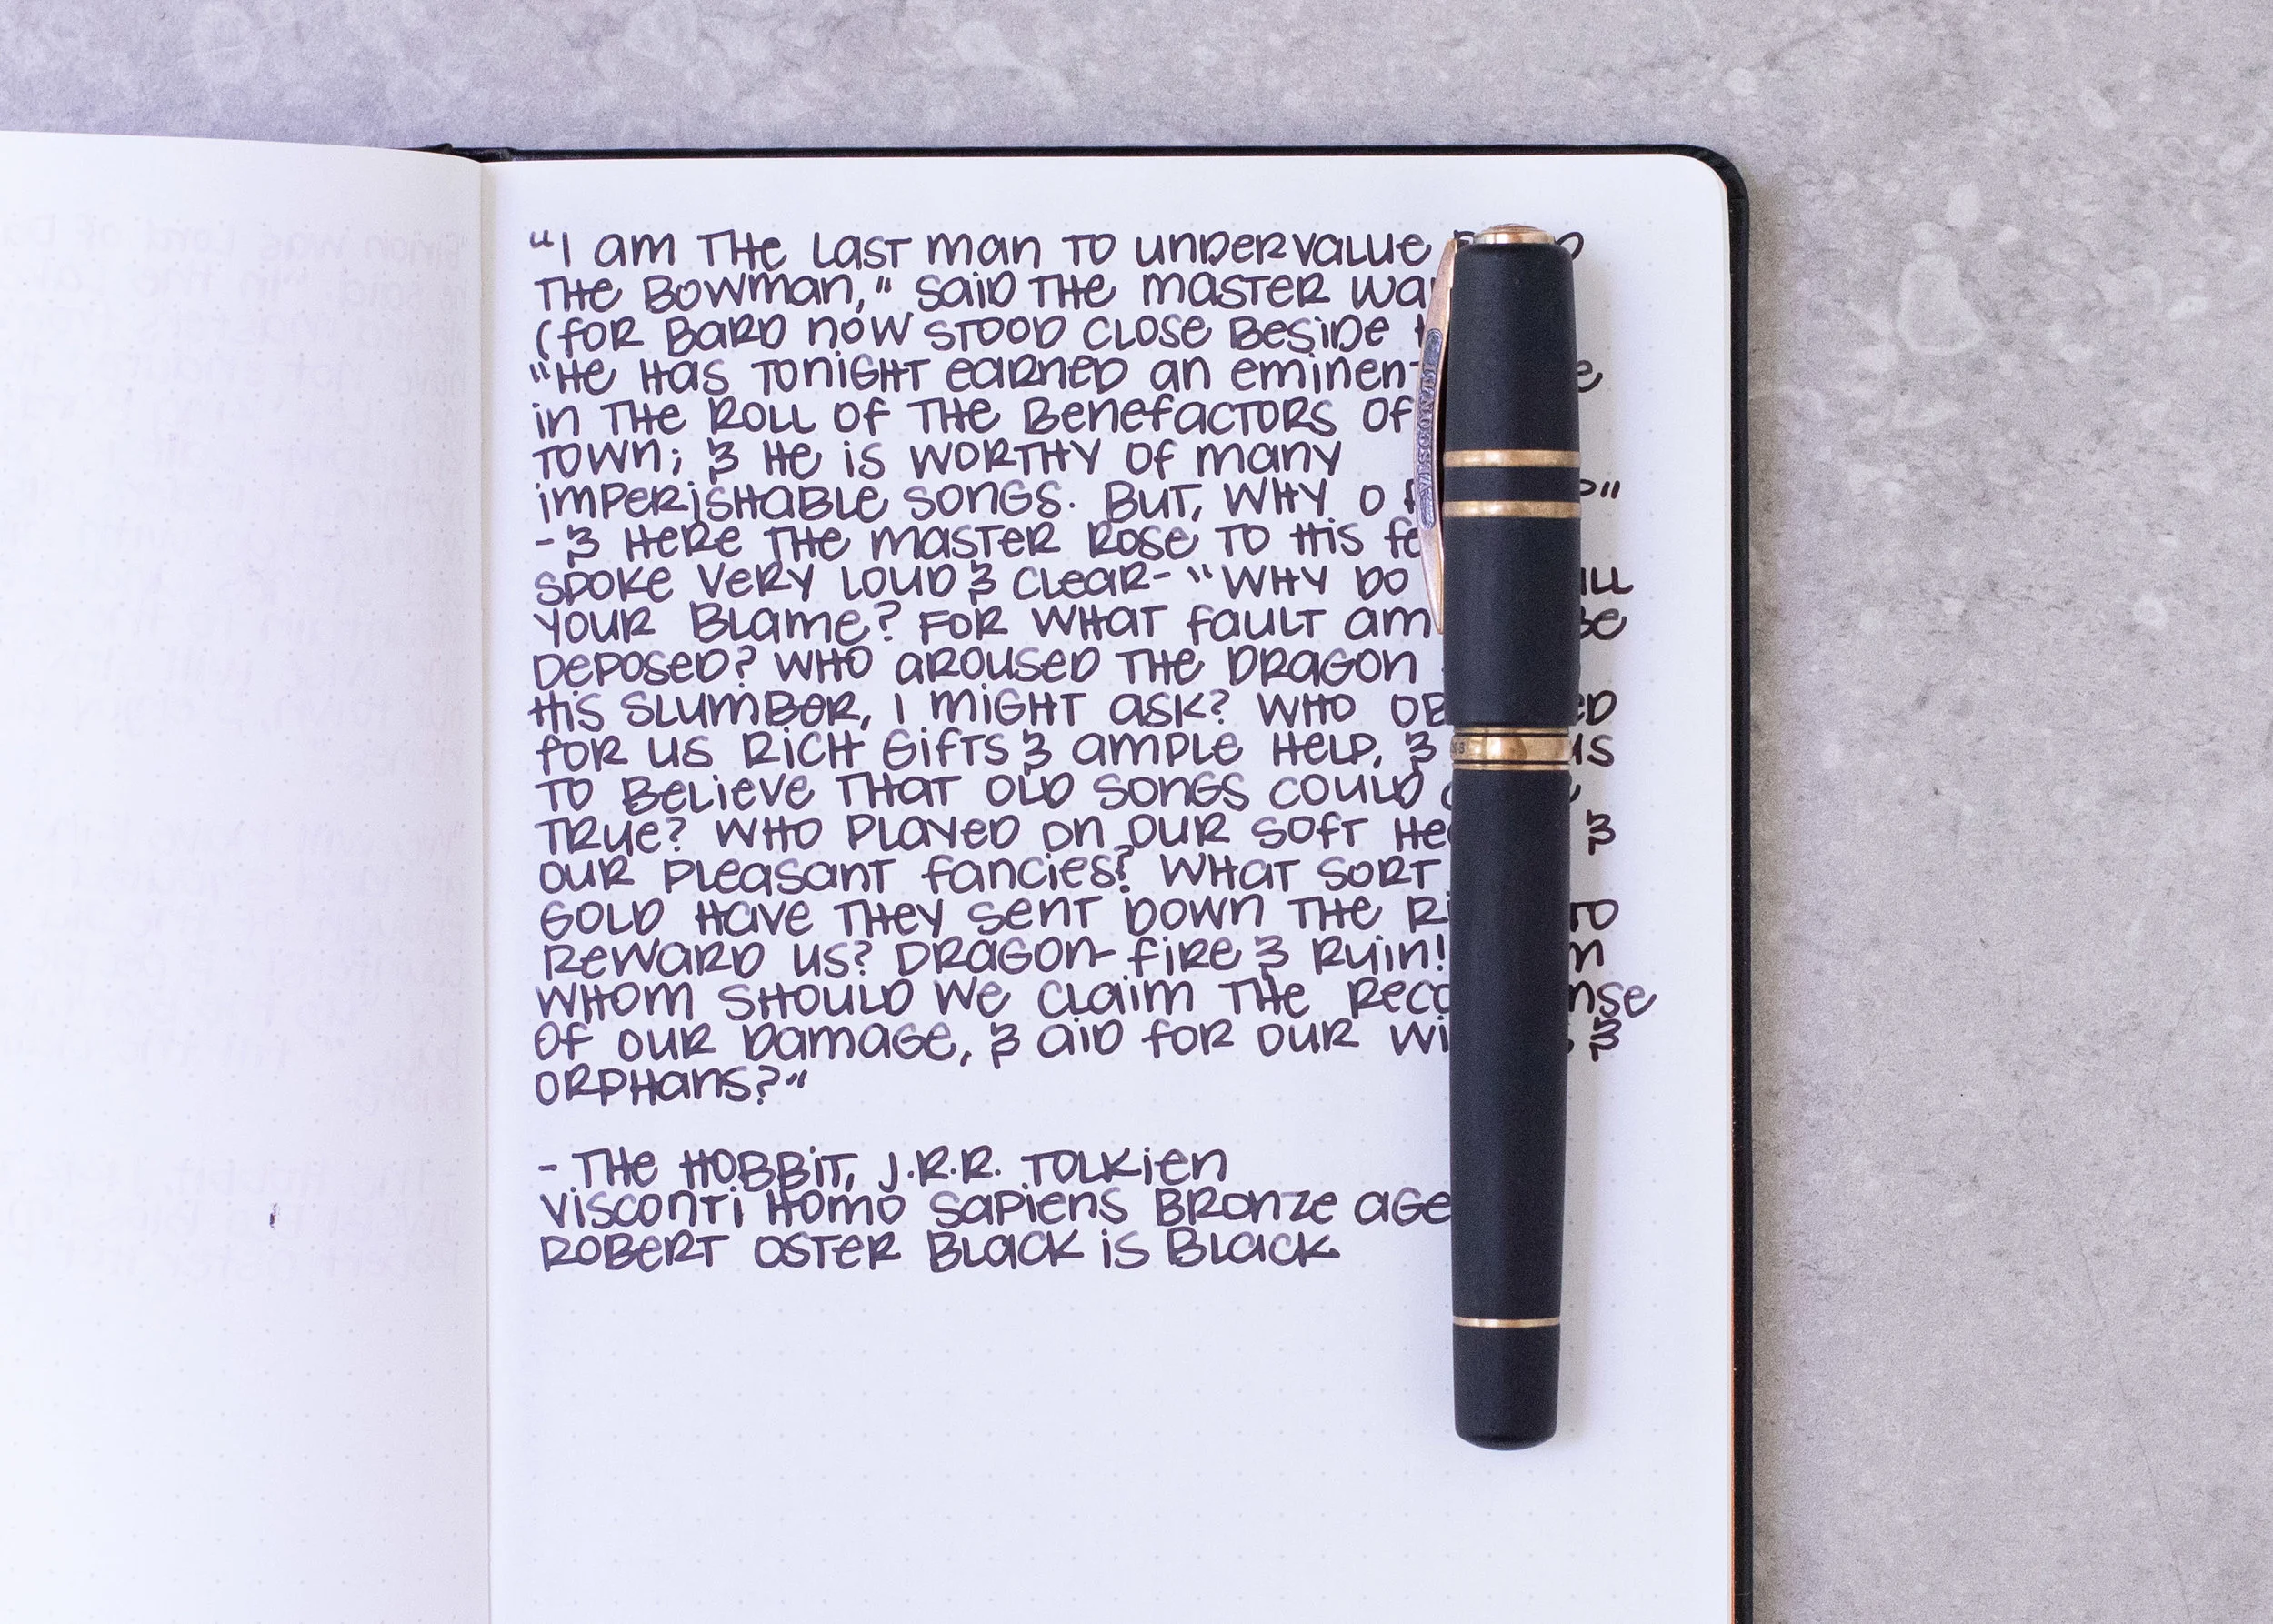 "I am the last man to undervalue
the Bowman," said the master
(for Bard now stood close beside
"He has tonight earned an eminent
in the roll of the benefactors of
town; & he is worthy of many
imperishable songs. But, why O
- & here the master rose to his
spoke very loud & clear- "Why do
your blame? For what fault am be
deposed? Who aroused the dragon
his slumber, I might ask? Who
for us rich gifts & ample help, & us
to believe that old songs could
true? Who played on our soft &
our pleasant fancies? What sort
gold have they sent down the to
reward us? Dragon-fire & ruin!
whom should we claim the
of our damage, & aid for our &
orphans?"
- The Hobbit, J.R.R. Tolkien
Visconti Homo Sapiens Bronze Age
Robert Oster Black is Black
VISCONTI